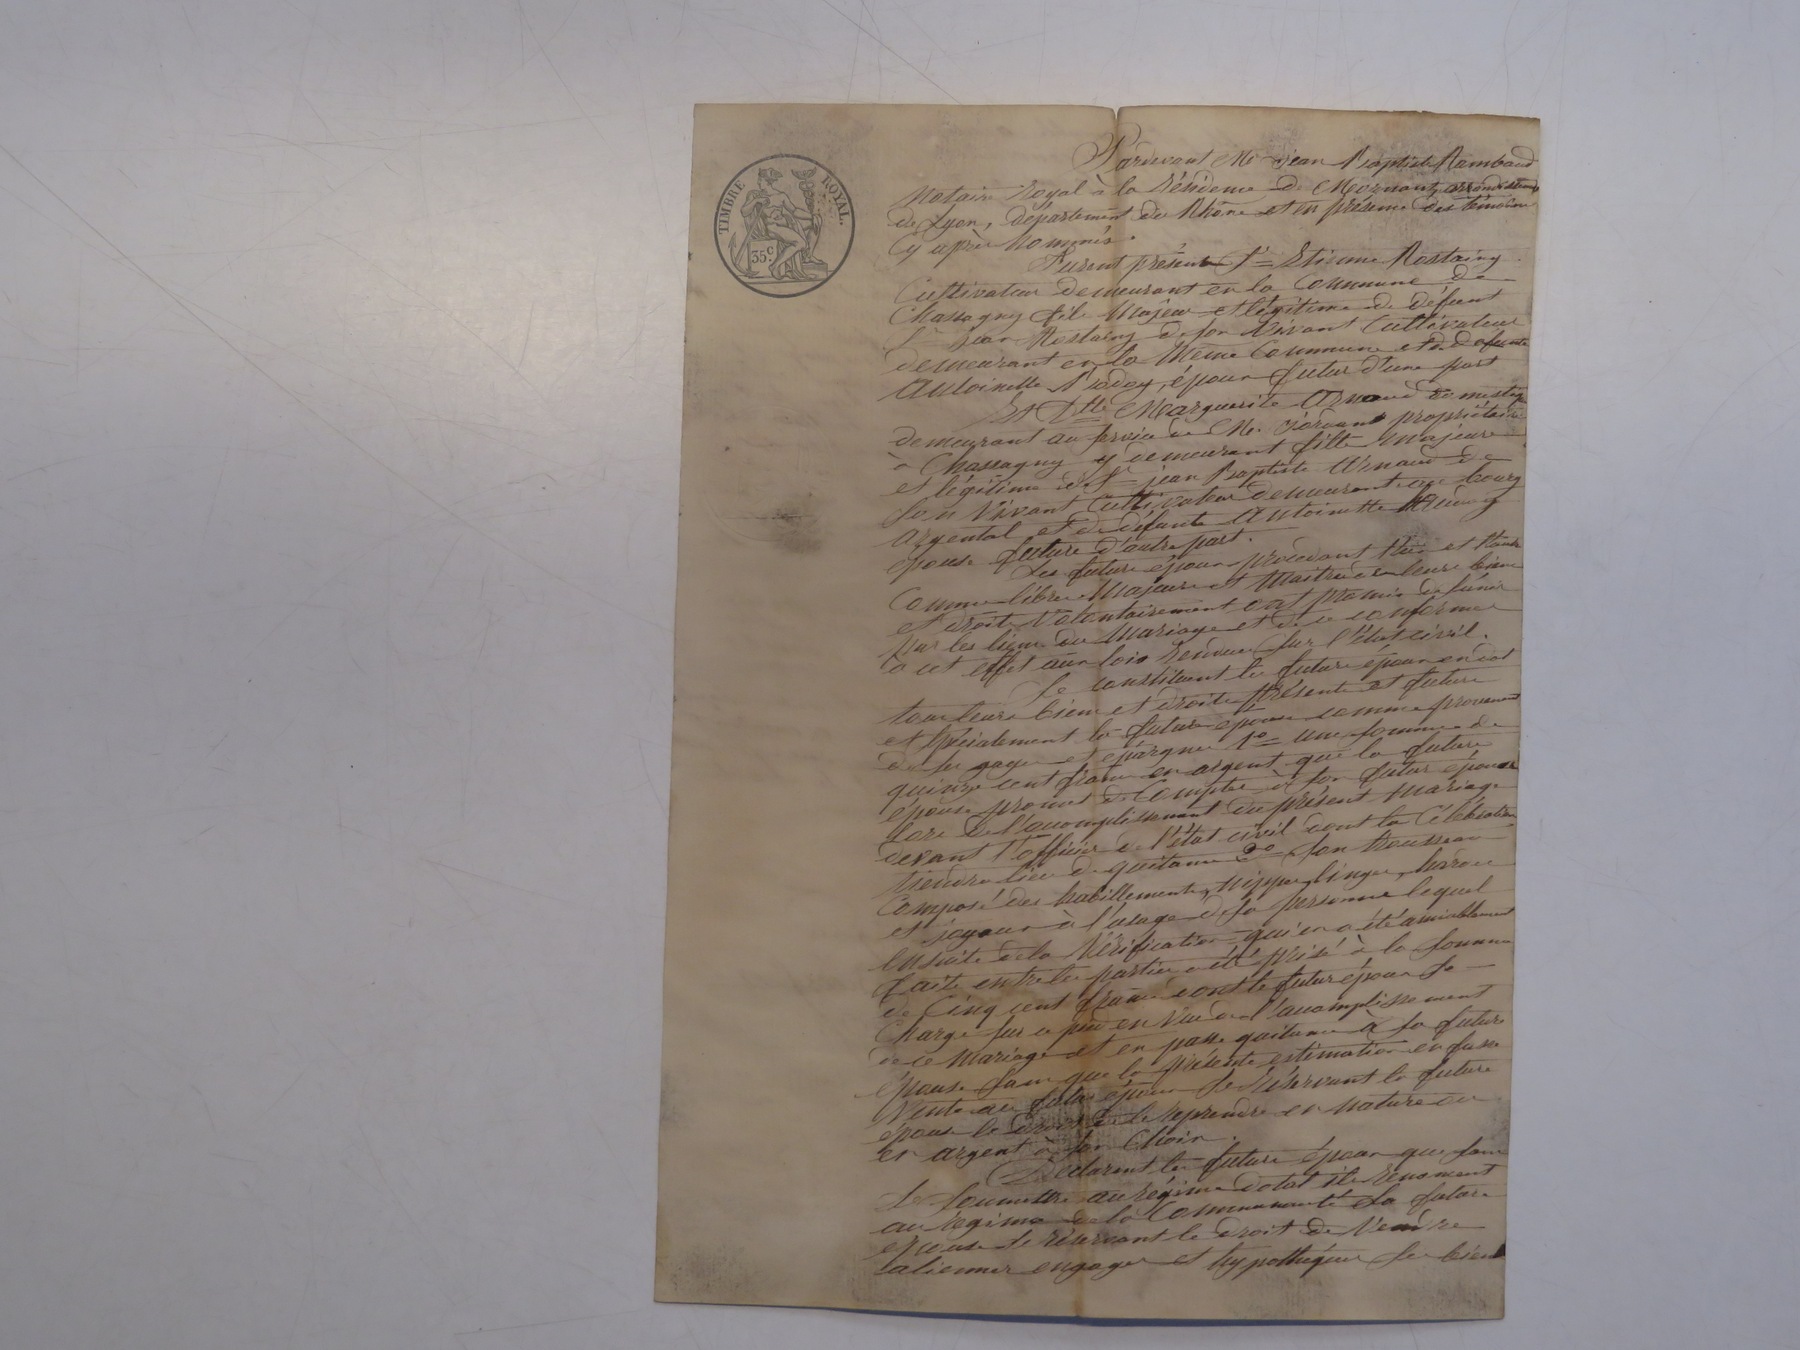 TIMBRE ROYAL.
35c.
Pardevant Me jean Baptiste Rambaud
Notaire Royal à la Résidence de Mornant, arrondissement
de Lyon, département du Rhône et en présence des témoins
Cy après Nommés.
Furent présents Sr Etienne Rostaing
Cultivateur demeurant en la Commune de
Chassagny fils Majeur et légitime de défunt
Sr jean Rostaing de son Vivant Cultivateur
demeurant en la Même Commune et de défunte
Antoinette, époux futur d'une part
Et Dlle Marguerite Arnaud domestique
demeurant au service de Mr propriétaire
à Chassagny y demeurant fille Majeure
et légitime de Sr jean Baptiste Arnaud de
son Vivant Cultivateur demeurant au bourg
argental et de défunte Antoinette
épouse future d'autre part.
Les futurs époux procédant
Comme libres Majeurs et Maitres de leurs biens
et droits Volontairement ont promis de s'unir
par les liens du Mariage et de se conformer
à cet effet aux lois rendues sur l'état civil.
Se constituent les futurs époux en dot
tous leurs biens et droits présents et futurs
et spécialement la future épouse comme provenant
de ses gages et épargnes 1o une somme de
quinze cent francs en argent que la future
épouse promet de Compter à son futur époux
lors de l'accomplissement du présent Mariage
devant l'officier de l'état civil dont la Célébration
tiendra lieu de quitance 2o Son trousseau
Composé des habillements, Nippes, linges, hardes
et joyaux à l'usage de sa personne lequel
ensuite de la Vérification qui en a été amiablement
faite entre les parties a été prisé à la Somme
de Cinq cent francs dont le futur époux se
Charge sur ce pied en Vue de l'accomplissement
de ce Mariage et en passe quitance à sa future
épouse sans que la présente estimation en fasse
Vente au futur époux se réservant la future
épouse le droit de le reprendre en Nature ou
en argent à son Choix.
Déclarent les futurs époux que sans
se soumettre au régime dotal ils renoncent
au régime de la Communauté la future
épouse se réservant le droit de Vendre
alienner engager et hypothéquer ses biens